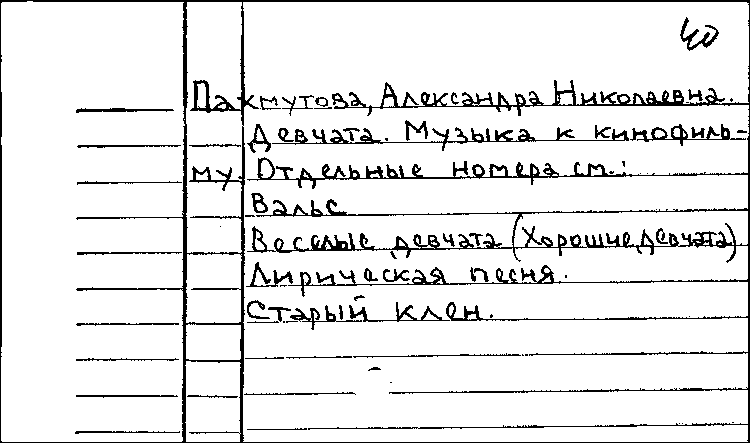 40
Пахмутова, Александра Николаевна.
Девчата. Музыка к кинофиль-
му. Отдельные номера см.:
Вальс
Веселые девчата (Хорошие девчата)
Лирическая песня.
Старый клен.